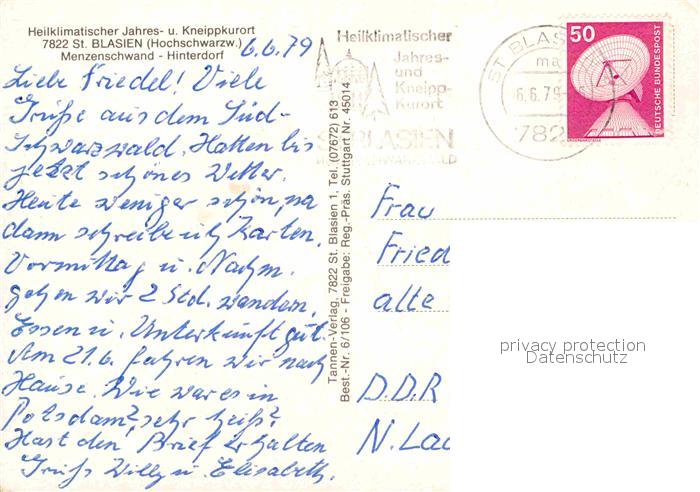 Heilklimatischer Jahres- u. Kneippkurort
7822 St. BLASIEN (Hochschwarzw.)
Menzenschwand - Hinterdorf
6.6.79
Liebe Friedel! Viele
Grüße aus dem Süd-
schwarzwald. Hatten bis
jetzt schönes Wetter.
Heute weniger schön, na
dann schreibe ich Karten.
Vormittag u. Nachm.
gehen wir 2 Std. wandern,
Essen u. Unterkunft gut.
Am 21.6. fahren wir nach
Hause. Wie war es in
Potsdam? sehr heiß?
Hast den Brief erhalten
Gruß Willy u. Elisabeth.
Tannen-Verlag, 7822 St. Blasien 1, Tel. (07672) 613
Best.-Nr. 6/106 - Freigabe: Reg.-Präs. Stuttgart Nr. 45014
Heilklimatischer
Jahres-
und
Kneipp-
Kurort
ST. BLASIEN
ST BLAS
ma
6.6.79
782
50
DEUTSCHE BUNDESPOST
Frau
Fried
alte
D.D.R
N.Lau
privacy protection
Datenschutz